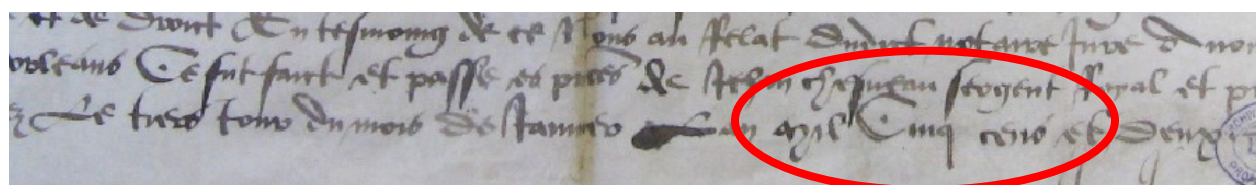 et de droict En tesmoing de ce Nous au Relat dudict notaire Jure
orleans Ce fut faict et passe es pnces de Jehan sergent Royal et
Le tiers Jour du mois de Janvier Lan mil Cinq cens et Deux